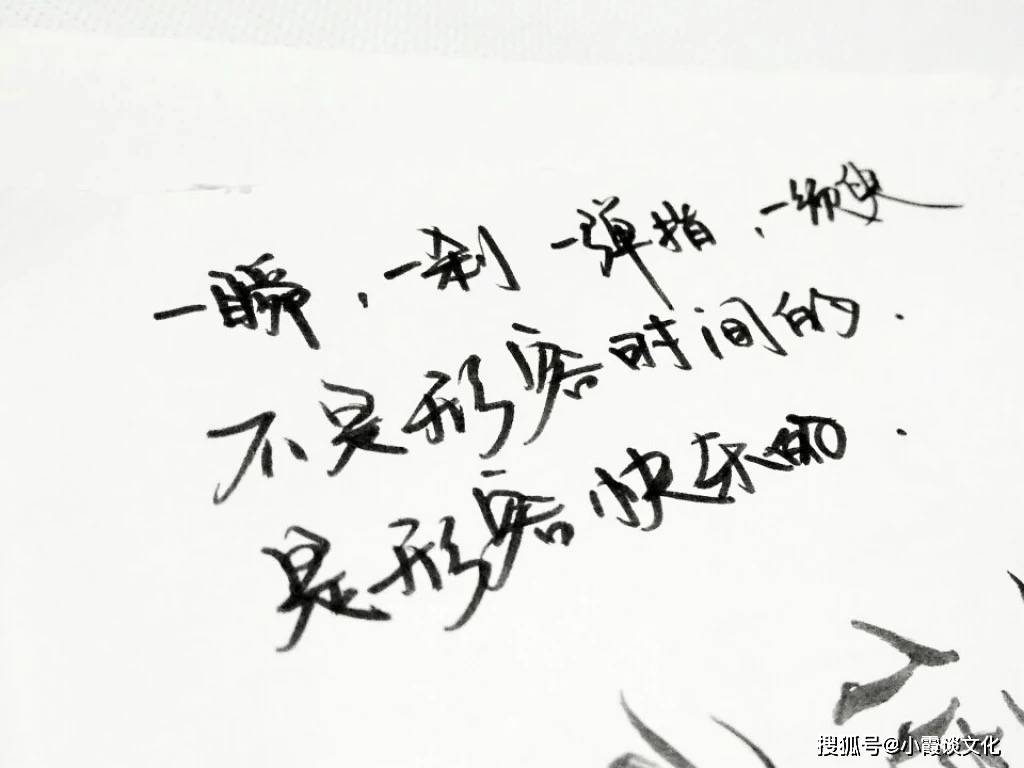 一瞬，一刹 一弹指，一须臾
不是形容时间的.
是形容快乐的.
搜狐号@小霞谈文化